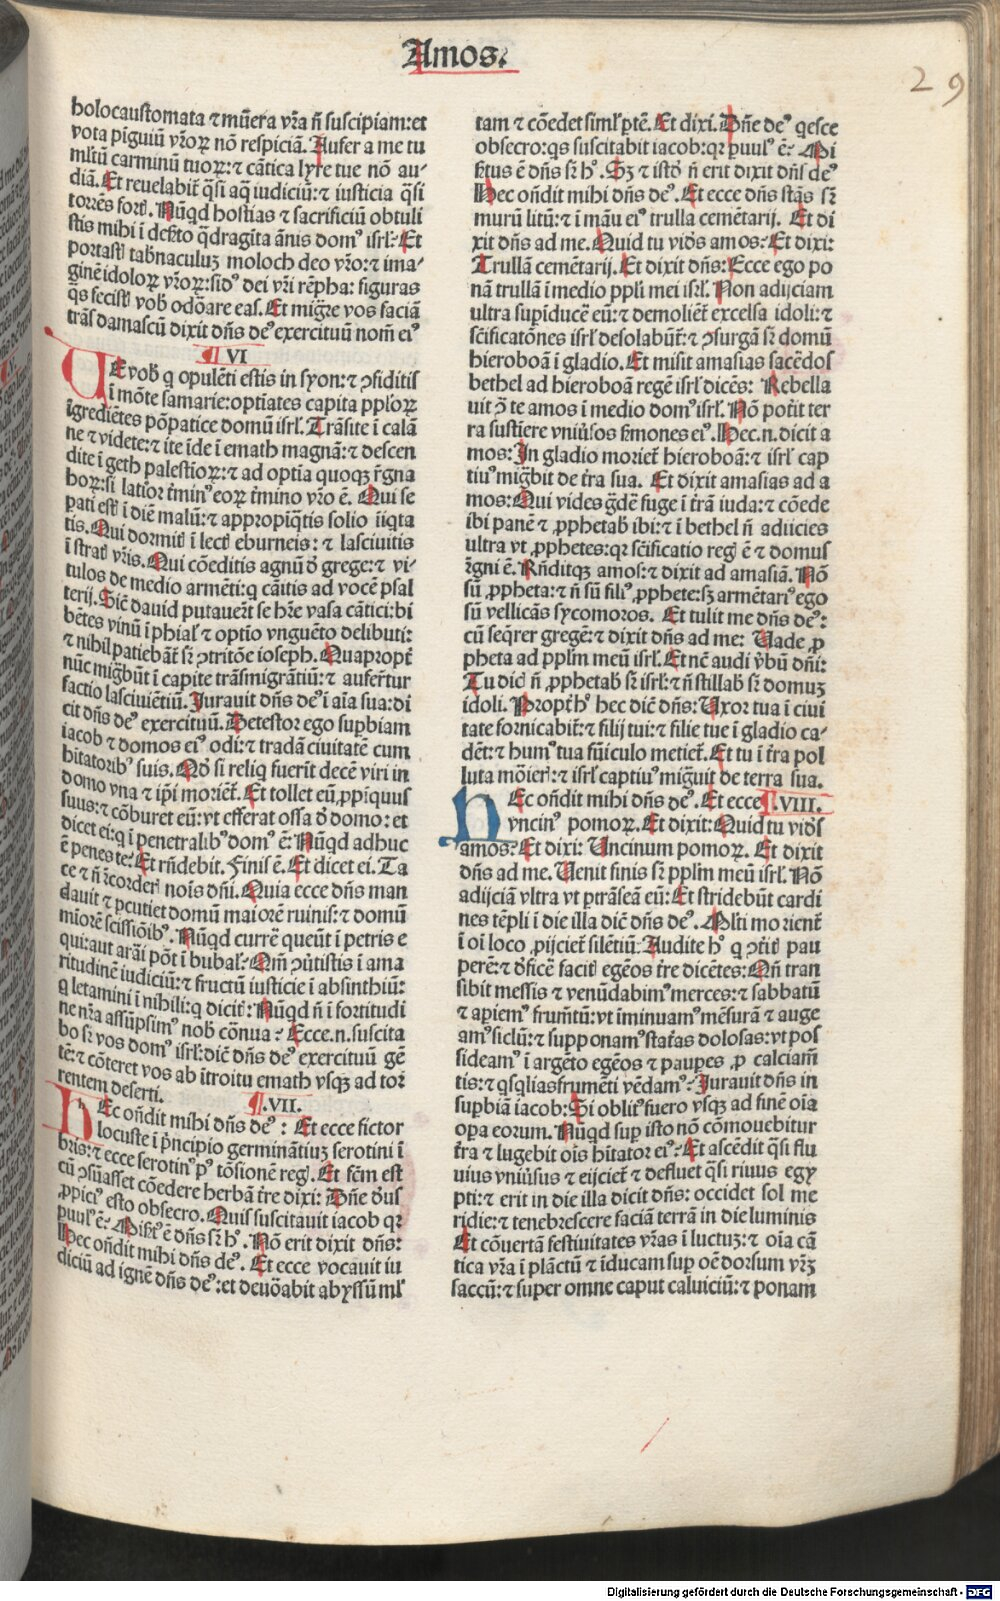 Amos.
29
holocaustomata ⁊ mūera vr̄a n̄ suscipiam:et
vota piguiū vr̄oꝝ nō respiciā. Aufer a me tu
ml̄tū carminū tuoꝝ: ⁊ cātica lyre tue nō au-
diā. Et reuelabit̄ q̄si aq̄ iudiciū: ⁊ iusticia q̄si
torrēs fort̄. Nūqd hostias ⁊ sacrificiū obtuli
stis mihi ī deẜto q̄dragīta ānis domꝰ isrl̄: Et
portastꝭ tab̄naculuꝫ moloch deo vr̄o: ⁊ ima-
ginē idoloꝝ vr̄oꝝ: sidꝰ dei vr̄i rēpha: figuras
q̄s fecistꝭ vob̄ odōare eas. Et migr̄e vos faciā
trās damascū dixit dn̄s deꝰ exercituū nom̄ eiꝰ
VI
VEvob̄ q opulēti estis in syon: ⁊ ↄfiditis
ī mōte samarie: optīates capita ppl̄oꝝ
īgrediētes pōpatice domū isrl̄. Trāsite ī calā
ne ⁊ videte: ⁊ ite īde ī emath magnā: ⁊ descen
dite ī geth palestīoꝝ: ⁊ ad optīa quoqꝫ r̄gna
hoꝝ: si latior t̄minꝰ eoꝝ t̄mino vr̄o ē. Qui se
pati estꝭ ī diē malū: ⁊ appropīq̄tis solio iīqta
tis. Qui dormitꝭ ī lectꝭ eburneis: ⁊ lasciuitis
ī stratꝭ vr̄is. Qui cōeditis agnū d̄ grege: ⁊ vi-
tulos de medio armēti: q cāitis ad vocē psal
terij. Sic̄ dauid putauer̄t se hr̄e vasa cātici: bi
bētes vinū ī phialꝭ ⁊ optīo vnguēto delibuti:
⁊ nihil patiebāt̄ sr̄ ↄtritōe ioseph. Quapropt̄
nūc migb̄ūt ī capite trāsmigrātiū: ⁊ auferet̄ur
factio lasciuiētiū. Iurauit dn̄s deꝰ ī aīa sua: di
cit dn̄s deꝰ exercituū. Detestor ego supbiam
iacob ⁊ domos eiꝰ odi: ⁊ tradā ciuitatē cum
hitatorib̄ suis. Qd̄ si reliq̄ fuerīt decē viri in
domo vna ⁊ ip̄i moriēt̄. Et tollet eū ꝓpīquus
suus: ⁊ cōburet eū: vt efferat ossa d̄ domo: et
dicet ei: q ī penetralib̄ domꝰ ē: Nūqd adhuc
ē penes te: Et rn̄debit. Finis ē. Et dicet ei. Ta
ce ⁊ n̄ r̄corderꝭ noīs dn̄i. Quia ecce dn̄s man
dauit ⁊ pcutiet domū maiorē ruinis: ⁊ domū
miorē scissiōib̄. Nūqd currē queūt ī petris e
qui: aut arāi pōt ī bubalꝭ: Qm̄ ↄūtistis ī ama
ritudinē iudiciū: ⁊ fructū iusticie ī absinthiū:
q letamini ī nihili: q dicitꝭ: Nūqd n̄ ī fortitudi
ne nr̄a assūpsimꝰ nob̄ cōnua: Ecce.n.suscita
bo sr̄ vos domꝰ isrl̄: dic̄ dn̄s deꝰ exercituū gē
tē: ⁊ cōteret vos ab ītroitu emath vsqꝫ ad tor
rentem deserti.
.VII.
HEc on̄dit mihi dn̄s deꝰ: Et ecce fictor
locuste ī p̄ncipio germinātiuꝫ serotini ī
bris: ⁊ ecce serotinꝰ pꝰ tōsionē regꝭ. Et fc̄m est
cū ↄsūasset cōedere herbā t̄re dixi: Dn̄e d̄us
ꝓpiciꝰ esto obsecro. Quis suscitauit iacob qr̄
puulꝰ ē: Miẜtꝰ ē dn̄s sr̄ h̄. Nō erit dixit dn̄s:
Hec on̄dit mihi dn̄s deꝰ. Et ecce vocauit iu
diciū ad ignē dn̄s deꝰ: et deuōabit abyssū ml̄
tam ⁊ cōedet siml̄ ptē. Et dixi. Dn̄e deꝰ qesce
obsecro: qs suscitabit iacob: qr̄ puulꝰ ē: Mi
ẜtus ē dn̄s sr̄ h̄. Sꝫ ⁊ istd̄ n̄ erit dixit dn̄s deꝰ
Hec on̄dit mihi dn̄s deꝰ. Et ecce dn̄s stās sr̄
murū litū: ⁊ ī māu eiꝰ trulla cemētarij. Et di
xit dn̄s ad me. Quid tu vid̄s amos: Et dixi:
Trullā cemētarij. Et dixit dn̄s: Ecce ego po
nā trullā ī medio ppl̄i mei isrl̄. Non adijciam
ultra supīducē eū: ⁊ demoliēt̄ excelsa idoli: ⁊
sc̄ificatōnes isrl̄ desolabūt̄: ⁊ ↄsurgā sr̄ domū
hieroboā ī gladio. Et misit amasias sacēdos
bethel ad hieroboā regē isrl̄ dicēs: Rebella
uit ↄ̄ te amos ī medio domꝰ isrl̄. Nō pot̄it ter
ra sustīere vniūsos ẜmones eiꝰ. Hec.n.dicit a
mos: In gladio moriet̄ hieroboā: ⁊ isrl̄ cap
tiuꝰ migb̄it de t̄ra sua. Et dixit amasias ad a
mos: Qui vides gd̄e fuge ī t̄rā iuda: ⁊ cōede
ibi panē ⁊ ꝓphetab̄ ibi: ⁊ ī bethel n̄ adiicies
ultra vt ꝓphetes: qr̄ sc̄ificatio regꝭ ē ⁊ domus
r̄gni ē. Rn̄ditqꝫ amos: ⁊ dixit ad amasiā. Nō
sū ꝓpheta: ⁊ n̄ sū filiꝰ ꝓphete: sꝫ armētariꝰ ego
sū vellicās sycomoros. Et tulit me dn̄s deꝰ:
cū seqrer gregē: ⁊ dixit dn̄s ad me: Uade ꝓ
pheta ad pplm̄ meū isrl̄. Et nc̄ audi v̄bū dn̄i:
Tu dicꝭ n̄ ꝓphetab̄ sr̄ isrl̄: ⁊ n̄ stillab̄ sr̄ domuꝫ
idoli. Propt̄ h̄ hec dic̄ dn̄s: Uxor tua ī ciui
tate fornicabit̄: ⁊ filij tui: ⁊ filie tue ī gladio ca-
dēt: ⁊ humꝰ tua fūiculo metiet̄. Et tu ī t̄ra pol
luta mōierꝭ: ⁊ isrl̄ captiuꝰ miḡuit de terra sua.
HEc on̄dit mihi dn̄s deꝰ. Et ecce .VIII.
vncinꝰ pomoꝝ. Et dixit: Quid tu vid̄s
amos: Et dixi: Uncinum pomoꝝ. Et dixit
dn̄s ad me. Uenit finis sr̄ pplm̄ meū isrl̄. Nō
adijciā vltra vt ptrāseā eū: Et stridebūt cardi
nes tēpli ī die illa dic̄ dn̄s deꝰ. Ml̄ti morient̄
ī oī loco ꝓijciet̄ silētiū: Audite h̄ q ↄt̄itꝭ pau
perē: ⁊ d̄ficē facitꝭ egēos t̄re dicētes: Qn̄ tran
sibit messis ⁊ venūdabimꝰ merces: ⁊ sabbatū
⁊ apiemꝰ frum̄tū: vt īminuamꝰ mēsurā ⁊ auge
amꝰ siclū: ⁊ supponamꝰ stat̄as dolosas: vt pos
sideamꝰ ī argēto egēos ⁊ paupes ꝓ calciam̄
tis: ⁊ qsqlias frumēti vēdamꝰ: Iurauit dn̄s in
supbiā iacob: Si oblitꝰ fuero vsqꝫ ad finē oīa
opa eorum. Nūqd sup isto nō cōmouebitur
t̄ra ⁊ lugebit oīs hitator eiꝰ: Et ascēdit q̄si flu
uius vniūsus ⁊ eijciet̄ ⁊ defluet q̄si riuus egy
pti: ⁊ erit in die illa dicit dn̄s: occidet sol me
ridie: ⁊ tenebrescere faciā terrā in die luminis
Et cōuertā festiuitates vr̄as ī luctuꝫ: ⁊ oīa cā
tica vr̄a ī plāctū ⁊ īducam sup oē dorsum vr̄ꝫ
saccū: ⁊ super omne caput caluiciū: ⁊ ponam
Digitalisierung gefördert durch die Deutsche Forschungsgemeinschaft - DFG